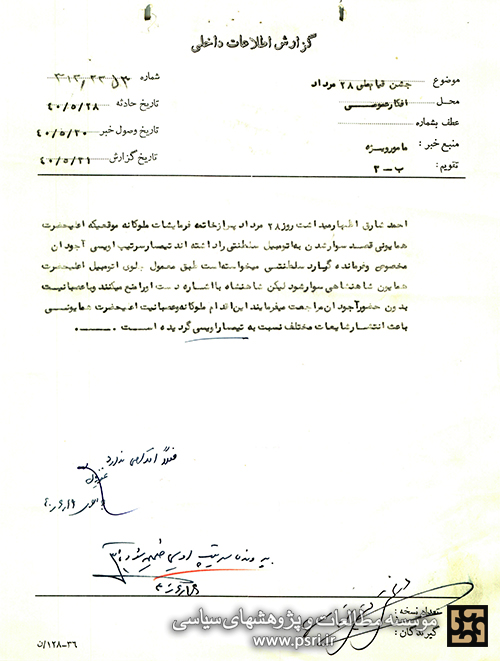 گزارش اطلاعات داخلی
موضوع : جشن قیام ملی ۲۸ مرداد
شماره
محل : افکار عمومی
تاریخ حادثه ۴۰/۵/۲۸
عطف بشماره :
تاریخ وصول خبر ۴۰/۵/۳۰
منبع خبر : مامور ویژه
تاریخ گزارش ۴۰/۵/۳۱
تقویم : ب - ۳
احمد شارق اظهار میداشت روز ۲۸ مرداد پس از خاتمه فرمایشات ملوکانه موقعیکه اعلیحضرت
همایونی قصد سوار شدن به اتومبیل سلطنتی را داشته اند تیمسار سرتیپ اویسی آجودان
مخصوص و فرمانده گارد سلطنتی میخواسته است طبق معمول جلوی اتومبیل اعلیحضرت
همایون شاهنشاهی سوار شود لیکن شاهنشاه با اشاره دست او را منع میکنند و با عصبانیت
بدون حضور آجودان مراجعت میفرمایند این اقدام ملوکانه و عصبانیت اعلیحضرت همایونی
باعث انتشار شایعات مختلف نسبت به تیمسار اویسی گردیده است .
فعلا اقدامی ندارد
به پرونده سرتیپ اویسی ضمیمه شود
تعداد نسخه :
گیرندگان :
موسسه مطالعات و پژوهشهای سیاسی
www.psri.ir
۳۶-۱۲۸/ن